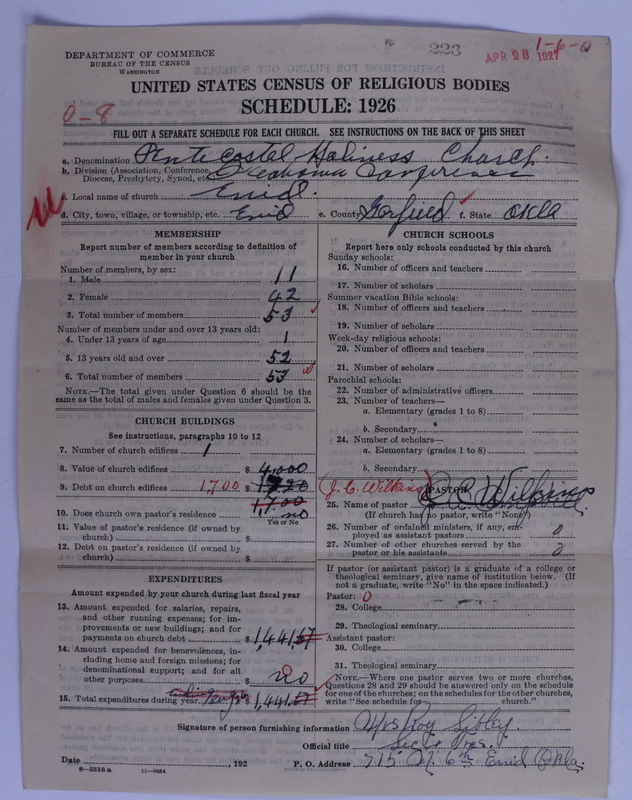 DEPARTMENT OF COMMERCE
BUREAU OF THE CENSUS
WASHINGTON
223
APR 28 1927
1-6-0
UNITED STATES CENSUS OF RELIGIOUS BODIES
SCHEDULE: 1926
0-8
FILL OUT A SEPARATE SCHEDULE FOR EACH CHURCH. SEE INSTRUCTIONS ON THE BACK OF THIS SHEET
a. Denomination Pentecostal Holiness Church.
b. Division (Association, Conference, Diocese, Presbytery, Synod, etc. Oklahoma Conference
c. Local name of church Enid.
d. City, town, village, or township, etc. Enid e. County Garfield f. State Okla
MEMBERSHIP
Report number of members according to definition of
member in your church
Number of members, by sex:
1. Male 11
2. Female 42
3. Total number of members 53
Number of members under and over 13 years old:
4. Under 13 years of age 1
5. 13 years old and over 52
6. Total number of members 53
NOTE.—The total given under Question 6 should be
same as the total of males and females given under Question 3.
CHURCH BUILDINGS
See instructions, paragraphs 10 to 12
7. Number of church edifices 1
8. Value of church edifices $ 4,000
9. Debt on church edifices 1,700 $
1,700
10. Does church own pastor's residence no
Yes or No
11. Value of pastor's residence (if owned by
church) $
12. Debt on pastor's residence (if owned by
church) $
EXPENDITURES
Amount expended by your church during last fiscal year
13. Amount expended for salaries, repairs,
and other running expenses; for im-
provements or new buildings; and for
payments on church debt $ 1,441.67
14. Amount expended for benevolences, in-
cluding home and foreign missions; for
denominational support; and for all
other purposes $ no
0
15. Total expenditures during year $ 1,441.67
CHURCH SCHOOLS
Report here only schools conducted by this church
Sunday schools:
16. Number of officers and teachers
17. Number of scholars
Summer vacation Bible schools:
18. Number of officers and teachers
19. Number of scholars
Week-day religious schools:
20. Number of officers and teachers
21. Number of scholars
Parochial schools:
22. Number of administrative officers
23. Number of teachers—
a. Elementary (grades 1 to 8)
b. Secondary
24. Number of scholars—
a. Elementary (grades 1 to 8)
b. Secondary
PASTOR
(J. C. Wilkins)
25. Name of pastor J. C. Wilkins
(If church has no pastor, write "None")
26. Number of ordained ministers, if any, em-
ployed as assistant pastors 0
27. Number of other churches served by the
pastor or his assistants 0
If pastor (or assistant pastor) is a graduate of a college or
theological seminary, give name of institution below. (If
not a graduate, write "No" in the space indicated.)
Pastor: 0
28. College
29. Theological seminary
Assistant pastor:
30. College
31. Theological seminary
NOTE.—Where one pastor serves two or more churches,
Questions 28 and 29 should be answered only on the schedule
for one of the churches; on the schedules for the other churches,
write "See schedule for church."
Signature of person furnishing information Mrs Roy Sibley
Official title
Date , 192 P. O. Address 715 W. 6th Enid Okla.
8-5518 a 11-9564